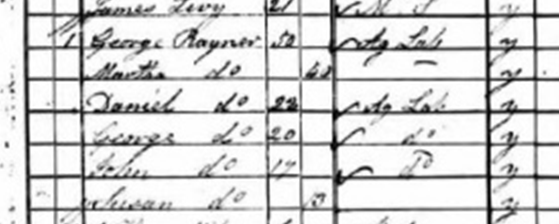 James Levy 21 M. S y
1 George Rayner 50 Ag Lab y
Martha do 40 – y
Daniel do 22 Ag Lab y
George do 20 do y
John do 17 do y
Susan do 13 y